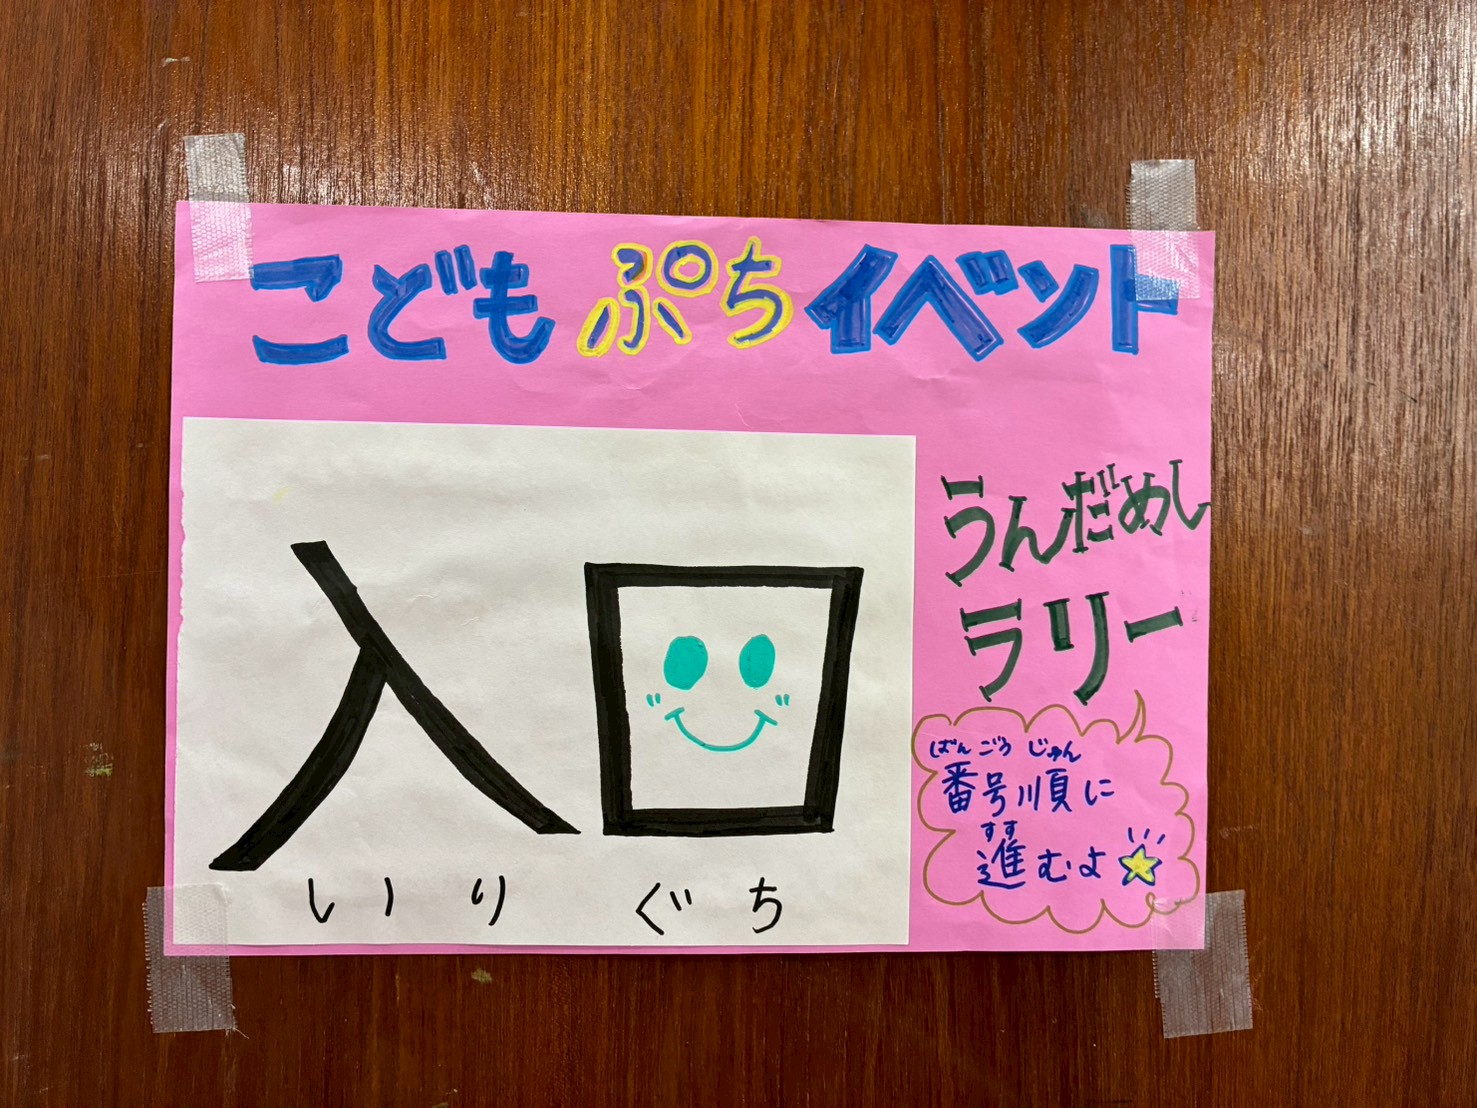 こどもぷちイベント
入口
いりぐち
うんだめし
ラリー
ばんごうじゅん
番号順に
すす
進むよ